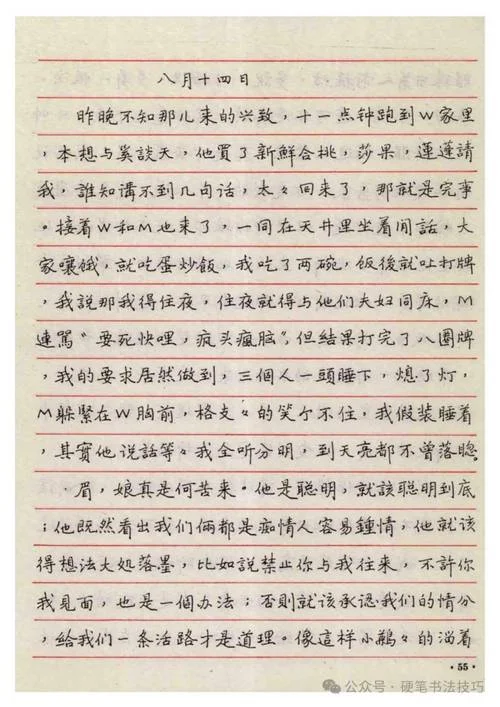 八月十四日
昨晚不知那儿来的兴致，十一点钟跑到W家里
，本想与奚談天，他買了新鮮合桃，莎果，蓮蓬請
我，誰知講不到几句话，太々回来了，那就是完事
。接着W和M也来了，一同在天井里坐着閒話，大
家嚷餓，就吃蛋炒飯，我吃了两碗，飯後就吐打牌
，我说那我得住夜，住夜就得与他们夫妇同床，M
連罵“要死快哩，疯头瘋脑”，但结果打完了八圈牌
，我的要求居然做到，三個人一頭睡下，熄了灯，
M躲緊在W胸前，格支々的笑个不住，我假装睡着
，其實他说話等々我全听分明，到天亮都不曾落聪
。眉，娘真是何苦来。他是聪明，就該聪明到底
；他既然看出我们俩都是痴情人容易鍾情，他就该
得想法大処落墨，比如説禁止你与我往来，不許你
我見面，也是一個办法；否則就该承认我们的情分
，给我们一条活路才是道理。像這样小鶼々的溜着
·55·
公众号·硬笔书法技巧